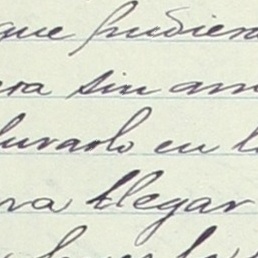 que pudiera
era sin am
durarlo en l
ra llegar